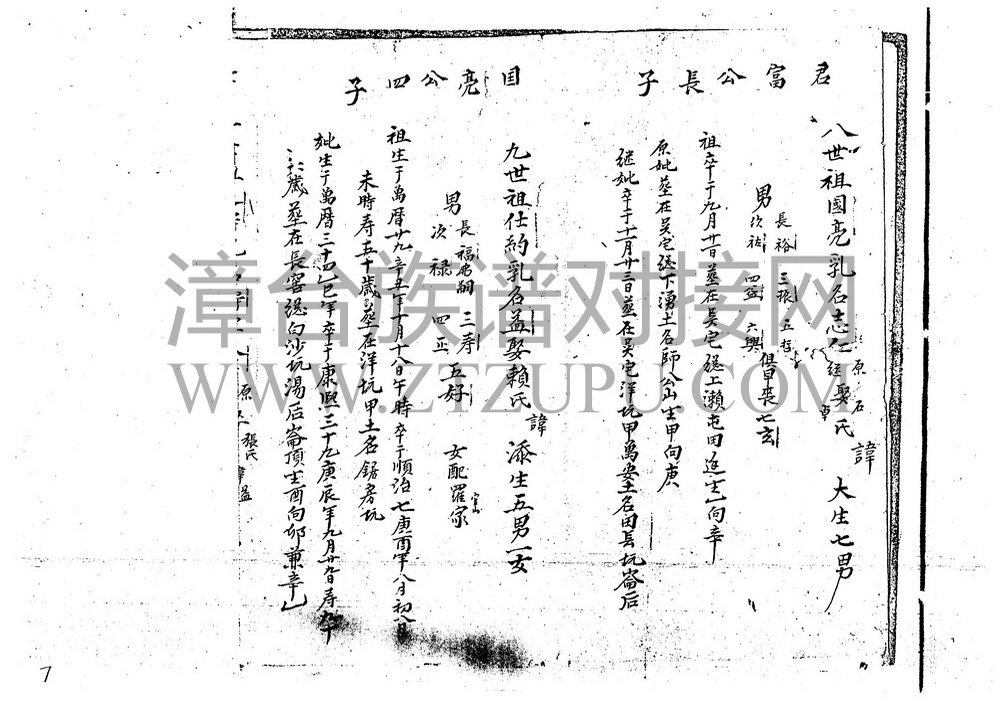 君富公長子
八世祖國亮乳名志仁 原石 継卓 娶氏 諱 大生七男
男 長裕 三振 五存 俱早喪 七玄
次祐 四益 六興
祖卒于九月廿日墓在吳宅隘上瀨屯田 乙向辛
原妣墓在吳宅隘下湧土名師公山坐甲向庚
继妣卒于十月廿三日墓在吳宅洋坑甲萬安土名田長坑崙后
国亮公四子
九世祖仕約乳名益娶賴氏 諱 添生五男一女
男 長福 嗣 三寿 五好 女配羅家
次禄 四正
祖生于萬曆廿九辛丑年十月十八日午時卒于順治七庚 年八月初八日
未時寿五十歲墓在洋坑甲土名 房坑
妣生于萬曆三十四 巳年卒于康熙三十九庚辰年九月廿 日寿九十
歲墓在長窖隘白沙坑湯后崙頂 酉向卯兼辛乙
原 張氏
漳台族谱对接网
WWW.ZTZUPU.COM
7